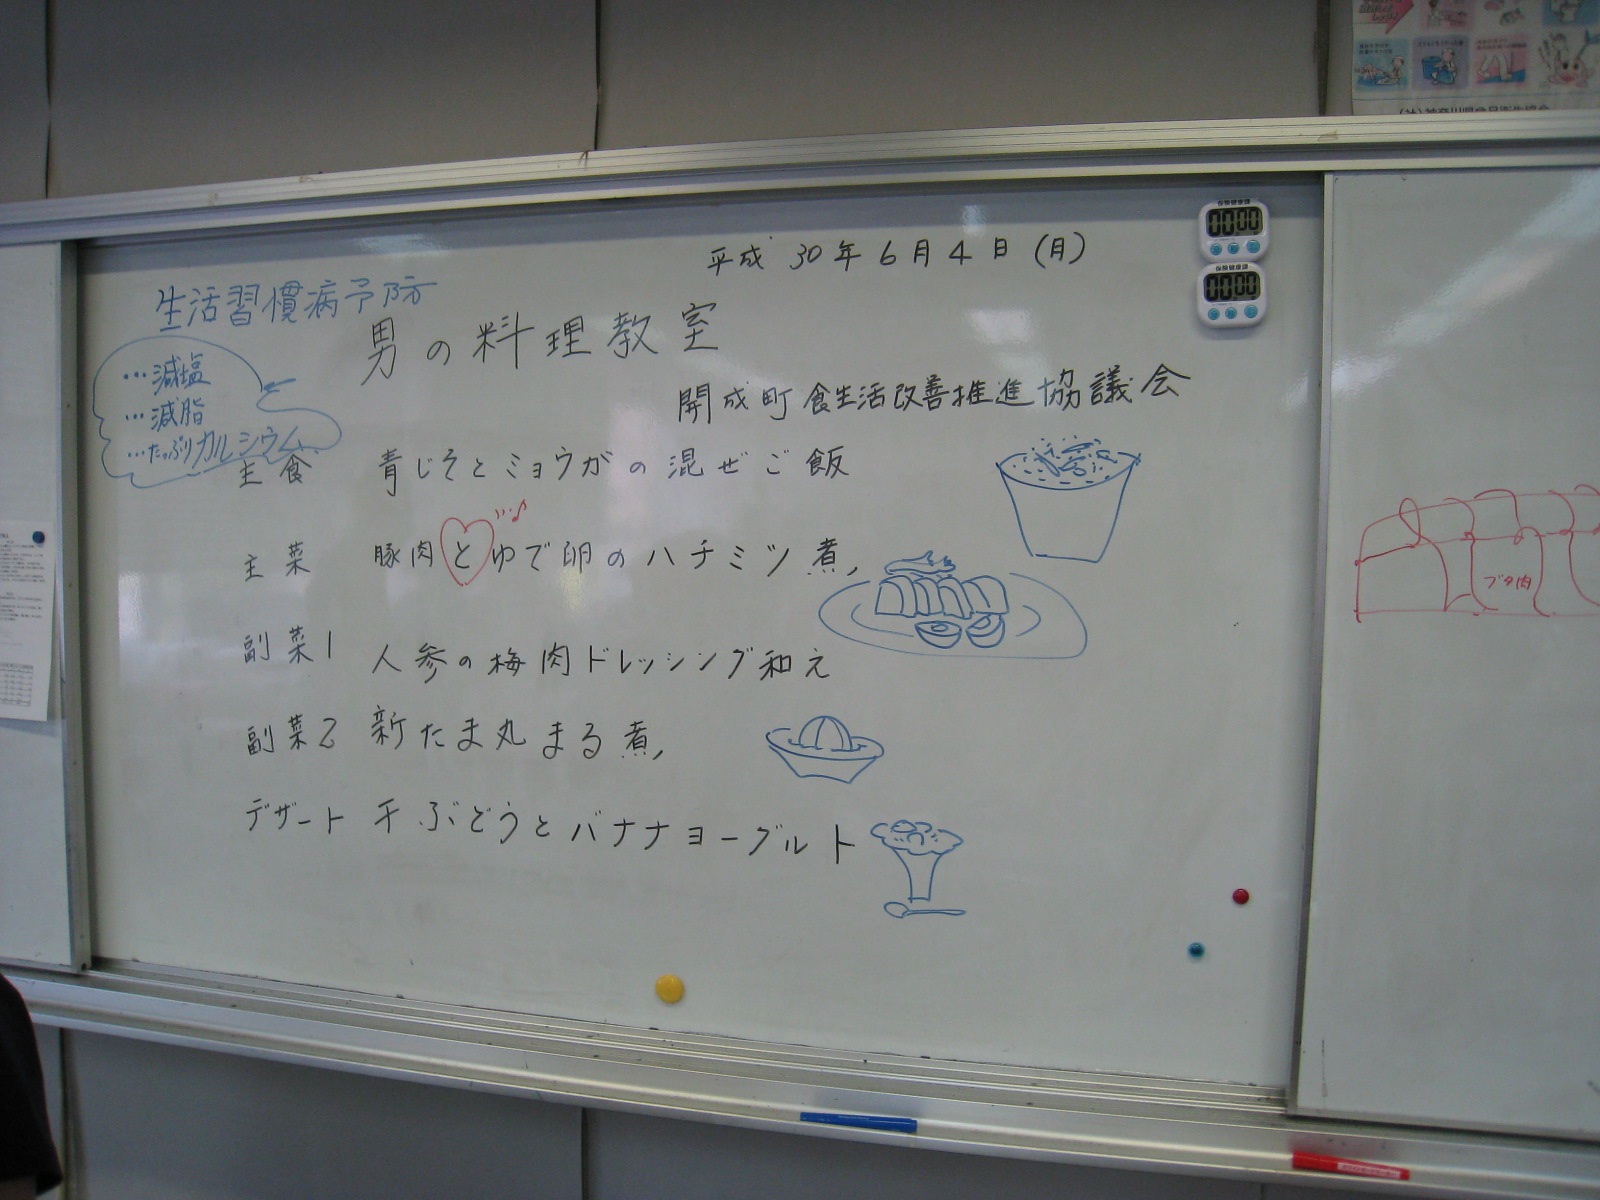 平成 30年 6月 4日 (月)
生活習慣病予防
男の料理教室
…減塩
…減脂
…たっぷりカルシウム
開成町食生活改善推進協議会
主食 青じそとミョウガの混ぜご飯
主菜 豚肉とゆで卵のハチミツ煮
副菜1 人参の梅肉ドレッシング和え
副菜2 新たま丸まる煮
デザート 干ぶどうとバナナヨーグルト
ブタ肉
保険健康課
00 00
保険健康課
00 00